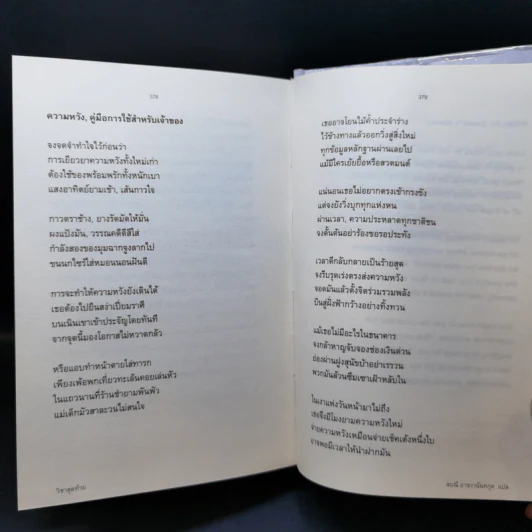 378
ความหวัง, คู่มือการใช้สำหรับเจ้าของ
จงจดจำทำใจไว้ก่อนว่า
การเยียวยาความหวังทั้งใหม่เก่า
ต้องใช้ของพร้อมพรักทั้งหนักเบา
แสงอาทิตย์ยามเช้า, เส้นกาวใจ
กาวตราช้าง, ยางรัดมัดให้มั่น
ผงแป้งมัน, วรรณคดีดีใส่
กำลังสองของมุมฉากจูงลากไป
ขนนกไซรีใส่หมอนนอนฝันดี
การจะทำให้ความหวังยังเดินได้
เธอต้องไปยืนสง่าเปี่ยมราศี
บนเนินเขาเช้าประจัญโดยทันที
จากจุดนี้มองโอกาสไม่หวาดกลัว
หรือแอบทำหน้าตายใส่ทารก
เพียงเพ้อพกเที่ยวทะเล้นคอยเล่นหัว
ในแถวนานที่ร้านชำยามพันพัว
แม่เด็กมัวสาละวนไม่สนใจ
วิชาสุดท้าย
379
เธออาจโยนไม้ค้ำประจำร่าง
ไว้ข้างทางแล้วออกวิ่งสู่สิ่งใหม่
ทุกข้อมูลหลักฐานผ่านเลยไป
แม้มีใครเย้ยยื้อหรือสวดมนต์
แน่นอนเธอไม่อยากตรงเข้ากรงขัง
แต่จงยังวิ่งบุกทุกแห่งหน
ผ่านเวลา, ความประหลาดทุกชาติชน
จงดั้นด้นอย่าร้องขอรอประทัง
เวลาดึกลับกลายเป็นร้ายสุด
จงรีบรุดเร่งตรงส่งความหวัง
จอดมันแล้วตั้งจิตร่วมรวมพลัง
บินสู่ฝั่งฟ้ากว้างอย่างทิ้งทวน
แม้เธอไม่มีอะไรในธนาคาร
จงกล้าหาญจับจองช่องเงินด่วน
ย่องผ่านฝูงสุนัขป่าอย่าเรรวน
พวกมันล้วนซึมเซาเฝ้าหลับใน
ในเงาแห่งวันหน้ามาไม่ถึง
เธอจึงมีโมงยามความหวังใหม่
จ่ายความหวังเหมือนจ่ายเช็คเด้งหนึ่งใบ
อาจพอมีเวลาให้นำฝากมัน
สฤณี อาชวานันทกุล แปล